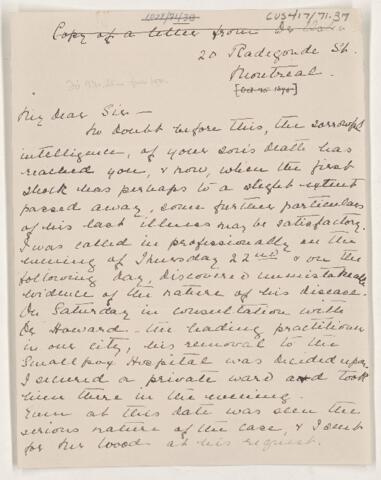 1028/71.38
CUS417/71.37
Copy of a letter from Dr
20 Radegonde St.
Montreal.
My dear Sir—
No doubt before this, the sorrowful
intelligence, of your son's death has
reached you, & now, when the first
shock has perhaps to a slight extent
passed away, some further particulars
of his last illness may be satisfactory.
I was called in professionally on the
evening of Thursday 22nd & on the
following day, discovered unmistakeable
evidence of the nature of his disease.
On Saturday in consultation with
Dr Howard – the leading practitioner
in our city, his removal to the
Smallpox Hospital was decided upon.
I secured a private ward and took
him there in the evening.
Even at this date was seen the
serious nature of the case, & I sent
for Mr Wood at his request.